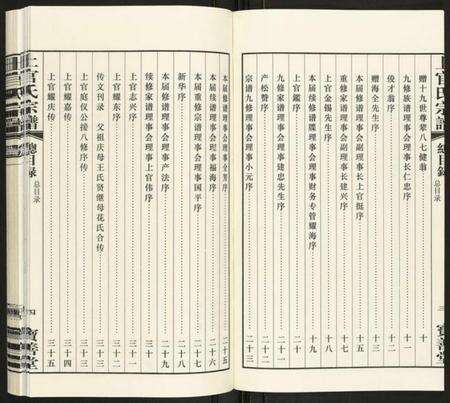 上官氏宗譜
總目录
总目录
寶善堂
赠十九世尊辈八七健翁 十
九修族谱理事会理事长仁忠序 十一
俊才翁序 十二
赠海全先生序 十三
本届修谱理事会副理事长上官挺序 十五
重修家谱理事会副理事长建兴序 十七
本届续修谱牒理事会理事财务专管耀海序 十九
上官金锡先生序 十八
上官鑑序 二十
九修家谱理事会理事建忠先生序 二十一
产松赞序 二十二
宗谱九修理事会理事小元序 二十三
本届修谱理事会理事金男序 二十五
本届修谱理事会理事福海序 二十六
本届重修宗谱理事会理事国平序 二十七
新华序 二十八
本届修谱理事会理事产法序 二十九
续修家谱理事会理事上官伟序 三十
上官志兴序 三十一
上官耀东序 三十二
传文刊录
父祖庆母王氏贤继母花氏合传
上官庭仪公援八修序传 三十三
上官耀嘉传 三十四
上官耀庆传 三十五
上官氏宗譜
總目录
总目录
寶善堂